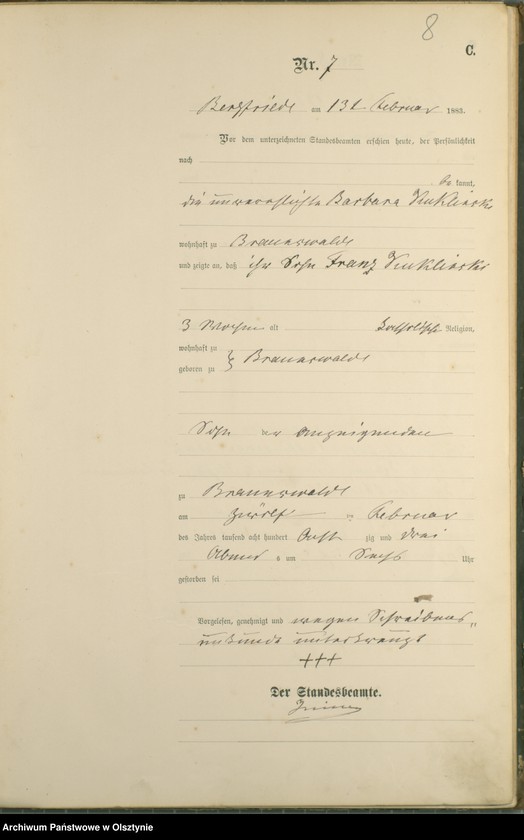 8
C.
Nr. 7
Bergfriede am 13t Februar 1883.
Vor dem unterzeichneten Standesbeamten erschien heute, der Persönlichkeit
nach
be kannt,
die unverehelichte Barbara
wohnhaft zu Braunswalde
und zeigte an, daß ihr Sohn Franz
3 Wochen alt katholischer Religion,
wohnhaft zu
geboren zu } Braunswalde
Sohn der Anzeigenden
zu Braunswalde
am zwölf ten Februar
des Jahres tausend acht hundert acht zig und drei
Abend s um Sechs Uhr
gestorben sei
Vorgelesen, genehmigt und wegen Schreibens-
unkunde unterkreuzt
+++
Der Standesbeamte.
Archiwum Państwowe w Olsztynie